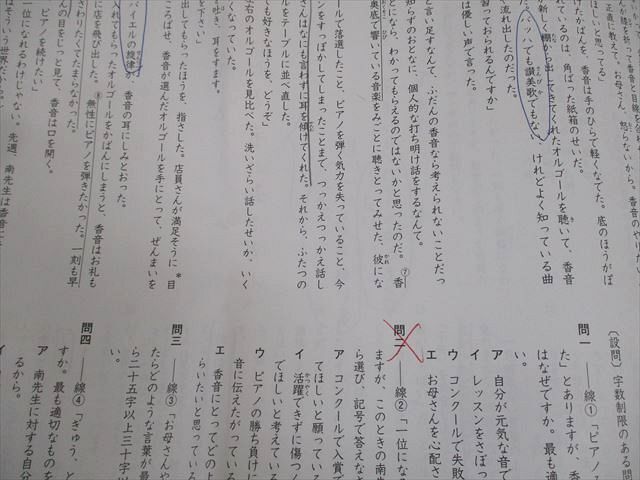 香音のや
香音と目線を
正直に教えて、お母さん、怒らないから、香
ほしいと思ってる」
けたかばんを、香音は手のひらで軽くなでた。底のほうがぼ
れているのは、角ばった紙箱のせいだ。
新しく棚から出してきてくれたオルゴールを聴いて、香音
バッハでも讃美歌でもな、けれどよく知っている曲
流れ出したのだった。
習っておられるんですか」
は優しい声で言った。
と言い足すなんて、ふだんの香音なら考えられないことだっ
知らずのおとなに、個人的な打ち明け話をするなんて。
となら、わかってもらえるのではないかと思ったのだ。⑦香
奥底で響いている音楽をみごとに聴きとってみせた、彼にな
ールで落選したこと、ピアノを弾く気力を失っていること、今
ンをすっぽかしてしまったことまで、つっかえつっかえ話し
さんはなにも言わずに耳を傾けてくれた。それから、ふたつの
ルをテーブルに並べ直した。
も好きなほうを、どうぞ」
右のオルゴールを見比べた。洗いざらい話したせいか、いく
くなっていた。
を吐き、耳をすます。
を下さい」
出してもらったほうを、指さした。店員さんが満足そうに＊目
ころばせ、香音が選んだオルゴールを手にとって、ぜんまいを
バイエルの旋律が、香音の耳にしみとおった。
入れてもらったオルゴールをかばんにしまうと、香音はお礼も
に店を飛び出した。⑧無性にピアノを弾きたかった。一刻も早
さわりたくてたまらなかった。
んの目をじっと見て、香音は口を開く。
ピアノを続けたい」
一位になれるわけじゃない。先週、南先生は香音に
〔設問〕字数制限のある問
問一 ──線①「ピアノ
た」とありますが、香
はなぜですか。最も適
い。
ア 自分が元気な音で
イ レッスンをさぼっ
ウ コンクールで失敗
エ お母さんを心配さ
問二 ──線②「一位にな
ますが、このときの南
ら選び、記号で答えな
ア コンクールで入賞で
てほしいと願ってい
イ 活躍できずに傷つ
てほしいと考えてい
ウ ピアノの勝ち負けに
音に伝えたがってい
エ 香音にとってどのよ
らいたいと思ってい
問三 ──線③「お母さんや
たらどのような言葉が最
ら二十五字以上三十字以
い。
問四 ──線④「ぎゅう、と
すか。最も適切なものを
ア 南先生に対する自分
るから。